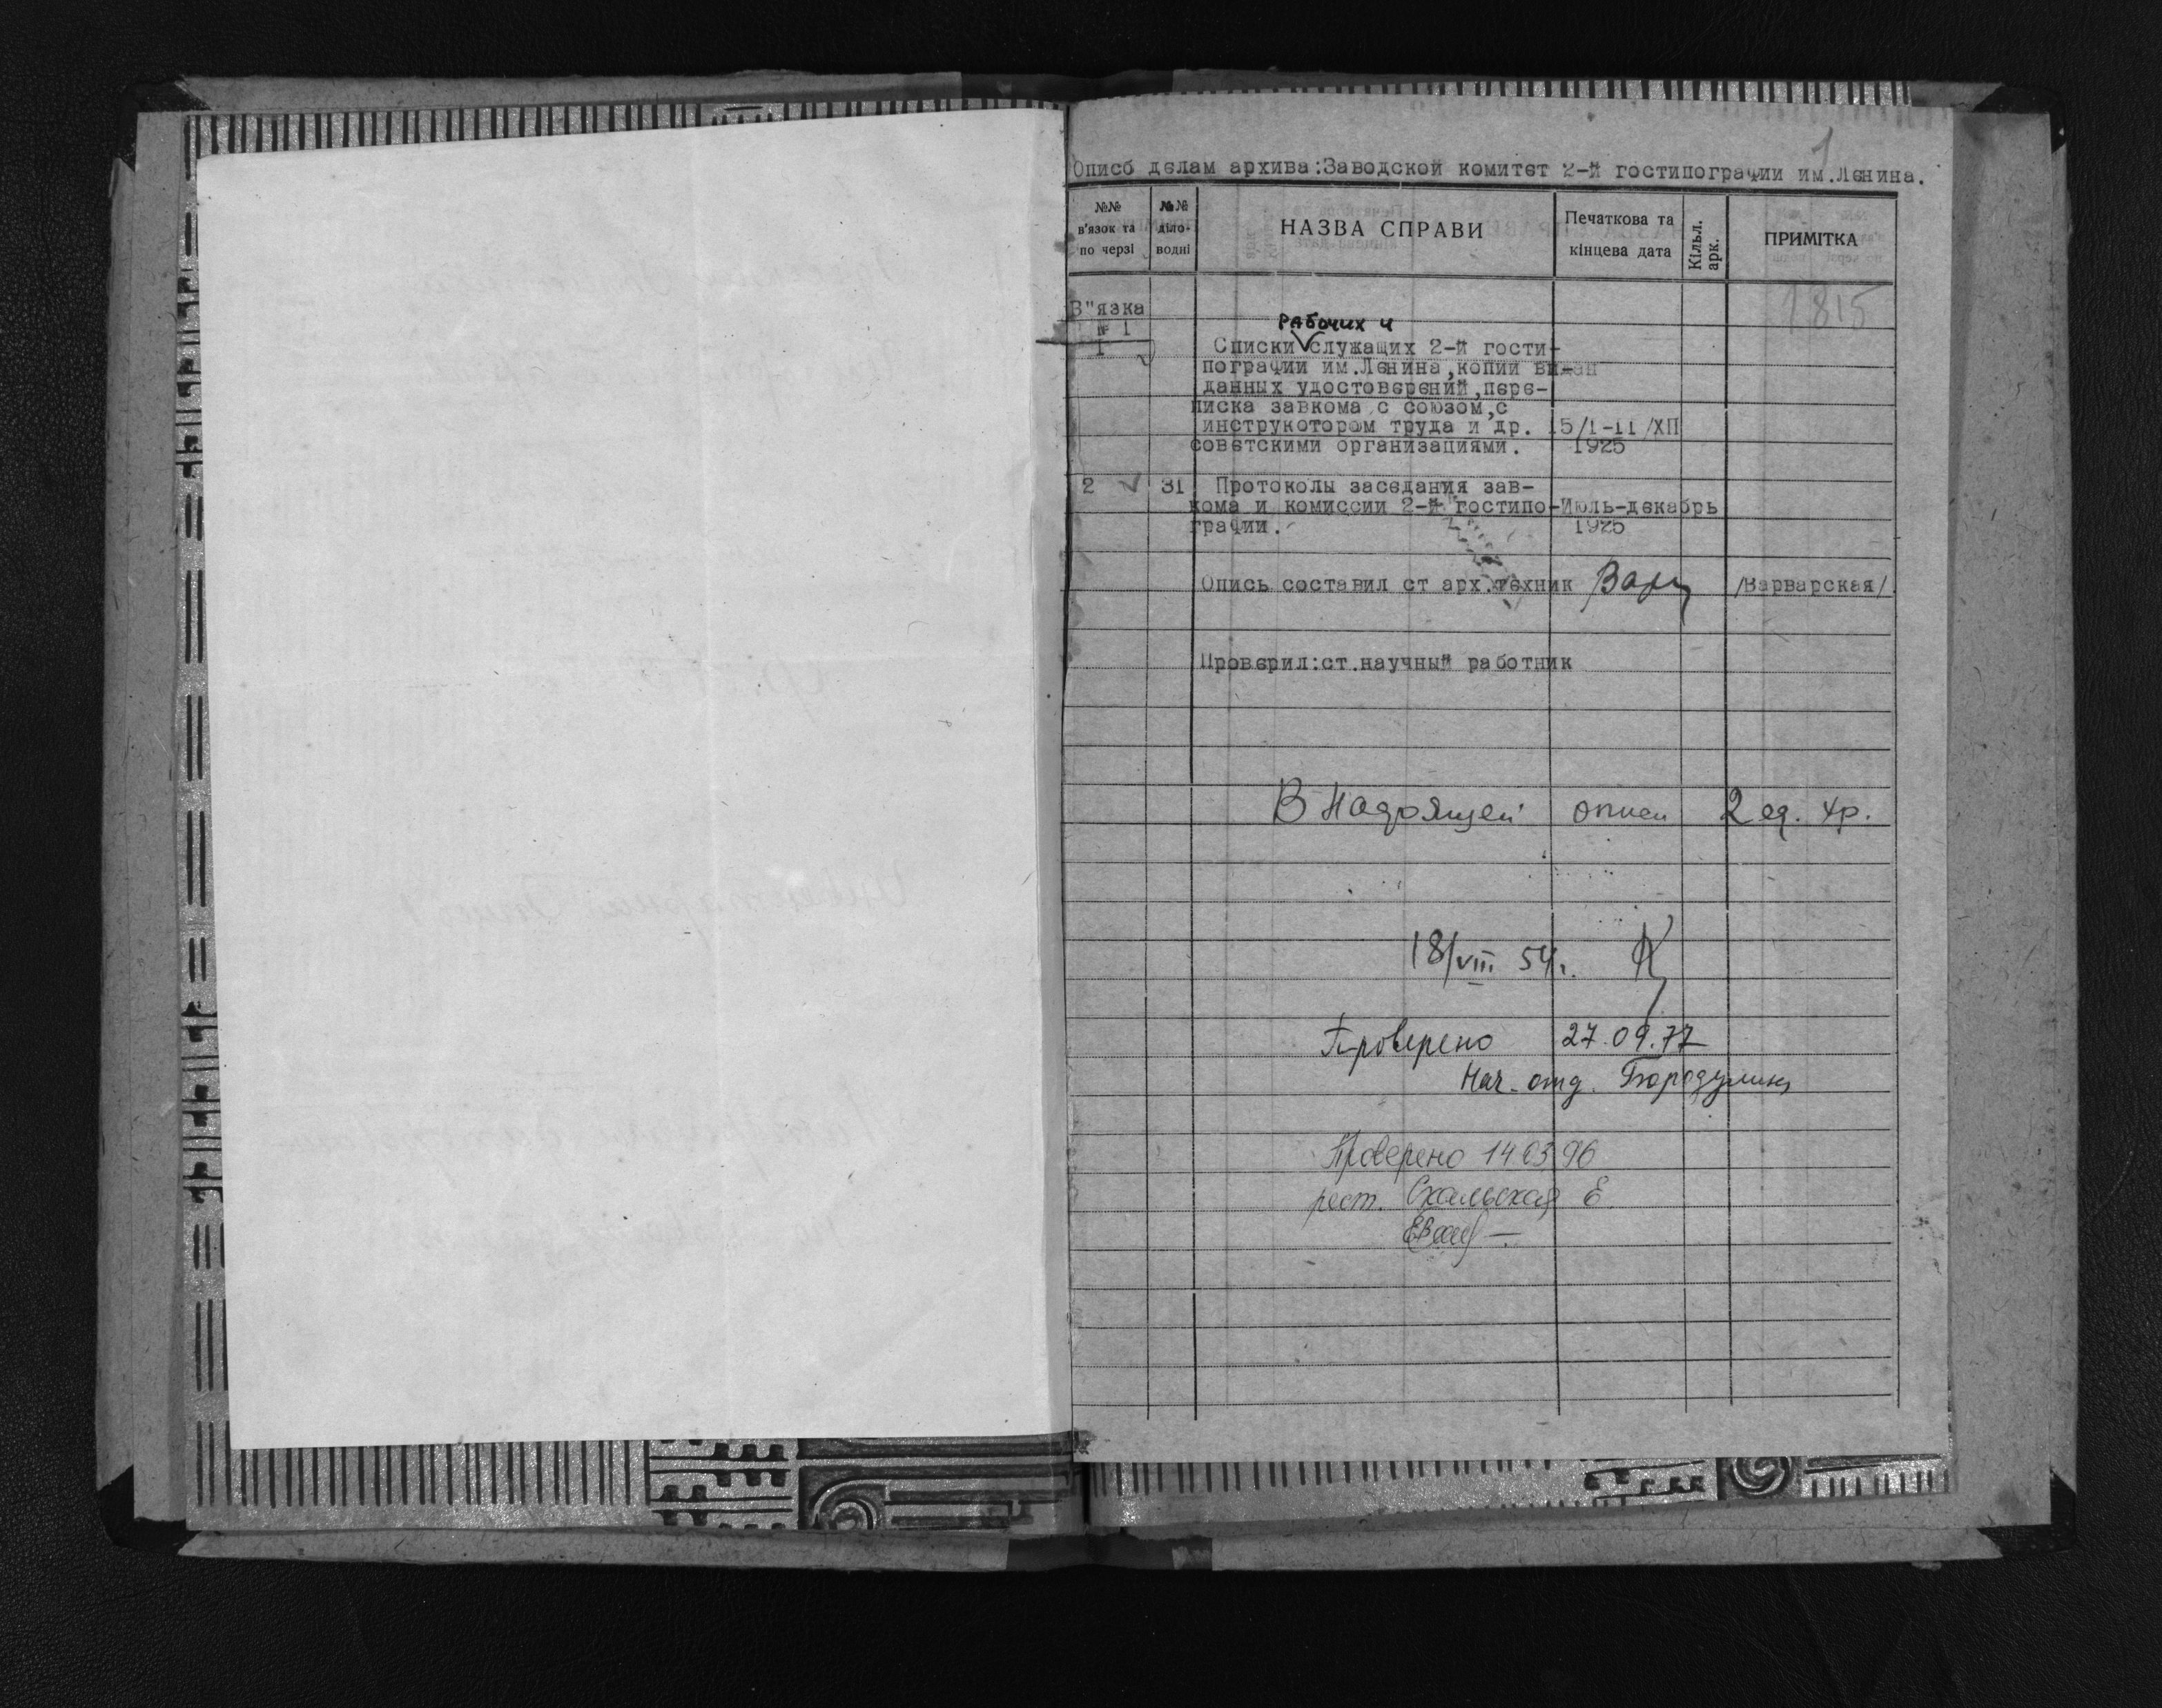 1
Описб делам архива:Заводской комитет 2-й гостипографии им.Ленина.
№№ в'язок та по черзі
№№ діло-водні
НАЗВА СПРАВИ
Печаткова та кінцева дата
Кільк. арк.
ПРИМІТКА
1815
В"язка
№ 1
РАбочих и
1 Списки служащих 2-й гости-
пографии им.Ленина,копии видан
данных удостоверений,пере-
писка завкома с союзом,с
инструкотором труда и др. 15/I-II/XП
советскими организациями. 1925
2 31 Протоколы заседания зав-
кома и комиссии 2-й гостипо- Июль-декабрь
графии. 1925
Опись составил ст арх.техник /Варварская/
Проверил:ст.научный работник
В настоящей описи 2 ед. хр.
18/VIII 54г.
Проверено 27.09.77
Нач. отд. Бородулина
Проверено 14 03 96
рест. Скальская Е.